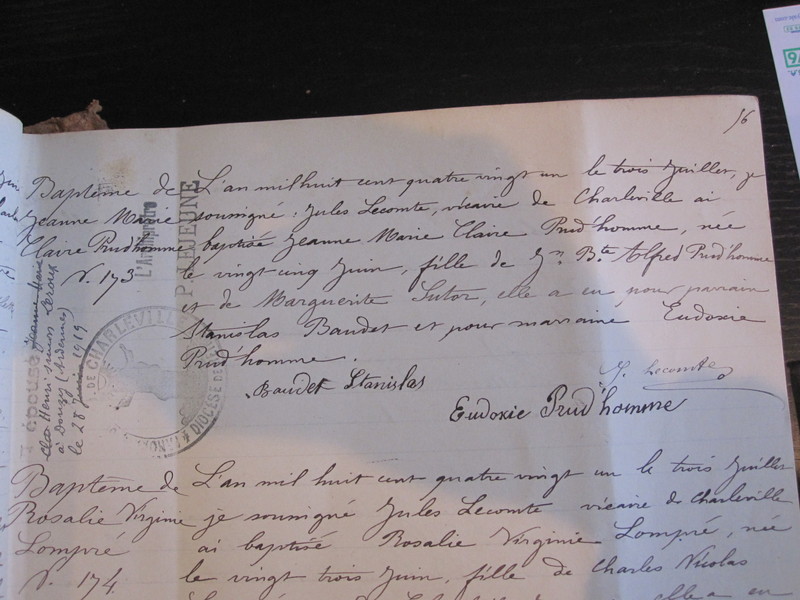 56
Baptême de
Jeanne Marie
Claire Prud'homme
N. 173
L'an mil huit cent quatre vingt un le trois Juillet, je
sousigné : Jules Lecomte, vicaire de Charleville ai
baptisé Jeanne Marie Claire Prud'homme, née
le vingt cinq Juin, fille de Jn Bte Alfred Prud'homme
et de Marguerite Sutor, elle a eu pour parrain
Stanislas Baudet et pour marraine Eudoxie
Prud'homme.
Baudet Stanislas
J. Lecomte
Eudoxie Prud'homme
L'Archiprêtre
P. LEJEUNE
DE CHARLEVILLE
DIOCESE DE
A épousé Jeanne Marie
Henri Leroux
à Donzy (Ardennes)
le 28 1919
Baptême de
Rosalie Virginie
Lompré
N. 174.
L'an mil huit cent quatre vingt un le trois Juillet
je sousigné Jules Lecomte vicaire de Charleville
ai baptisé Rosalie Virginie Lompré, née
le vingt trois Juin, fille de Charles Nicolas
elle a eu